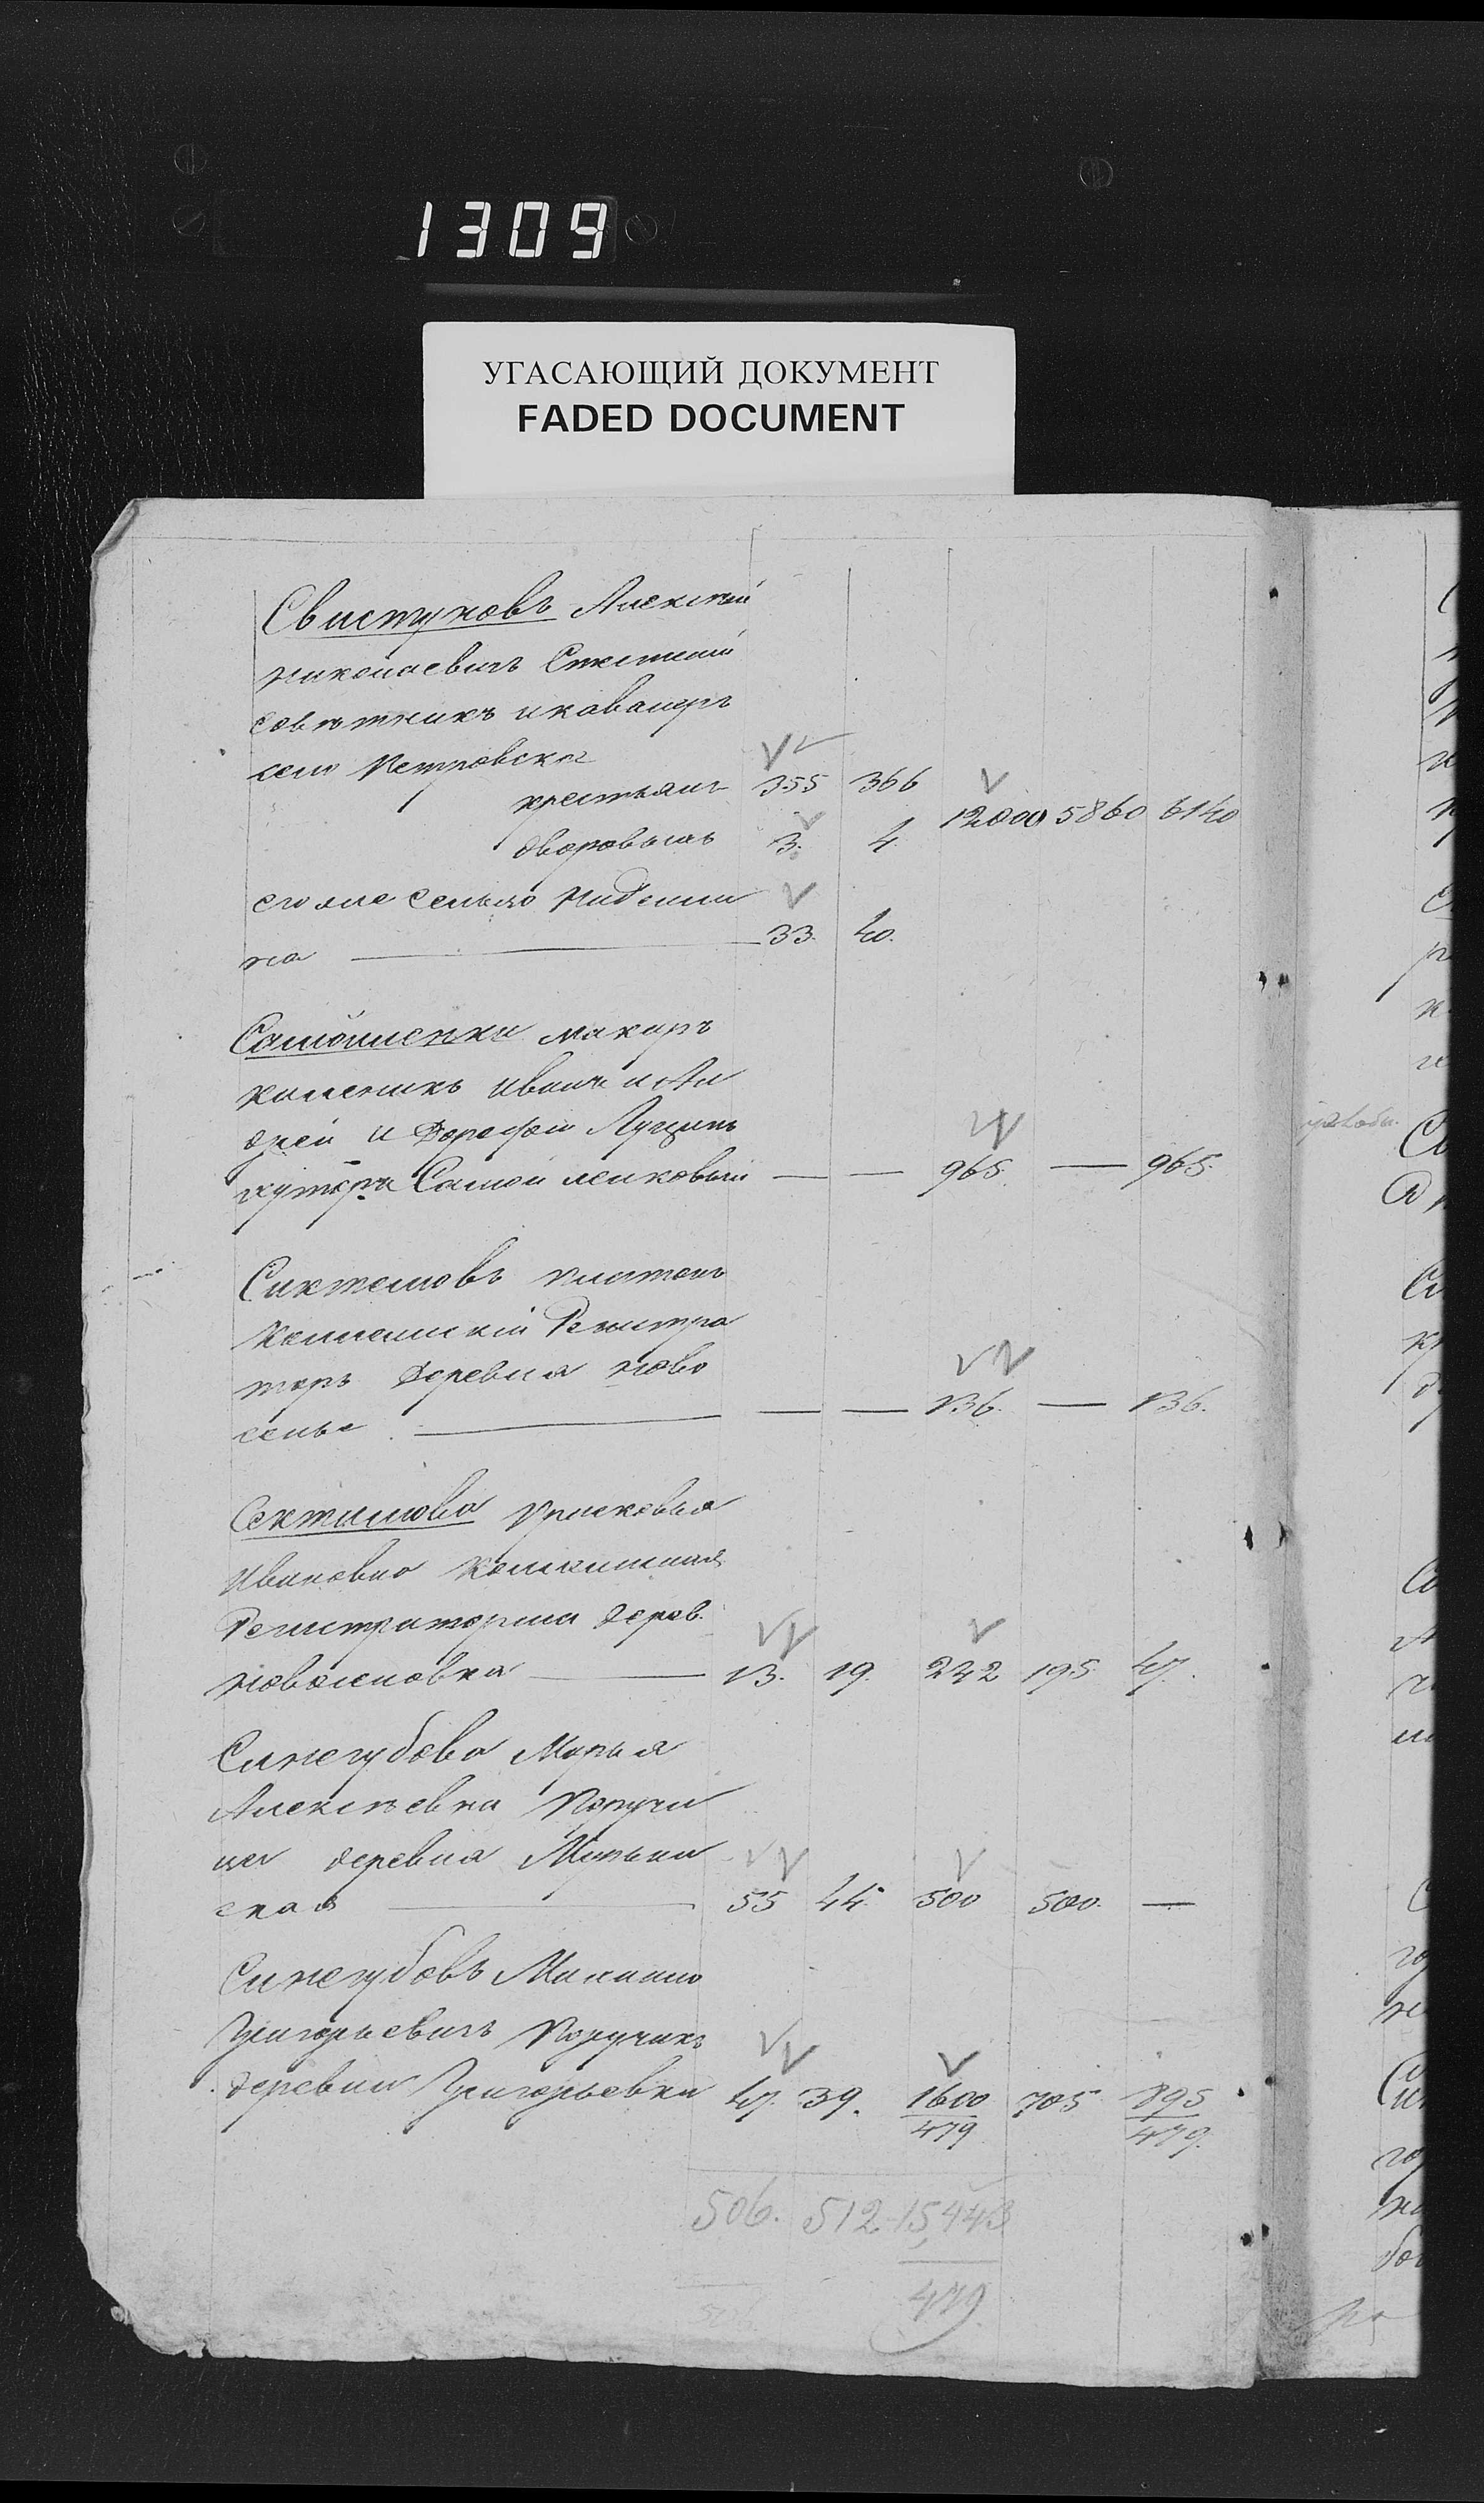 1309
УГАСАЮЩИЙ ДОКУМЕНТ
FADED DOCUMENT
Свистуновъ Алексѣй
Николаевичъ Статский
совѣтникъ и кавалеръ
село Петровское
крестьянъ 355 366
12000 5860 6140
дворовыхъ 3. 4.
его же сельцо
на — 33. 40.
Самойленки Макаръ
Иванъ и Ан
дрей и Дорофей
хутора Самойленковы — — 965. — 965.
Платонъ
Коллежский Регистра
торъ деревня Ново
селье — — — 136. — 136.
Прасковья
Ивановна Коллежская
Регистраторша дерев.
— 13. 19. 242 195 47.
Синегубова Марья
Алексѣевна Поручи
ца деревня Марьин
ская — 55 44. 500 500. —
Синегубовъ Михаило
Григорьевичъ Поручикъ
деревни Григорьевки 47. 39. 1600 705 895
479 479.
506. 512. 15,443
479.